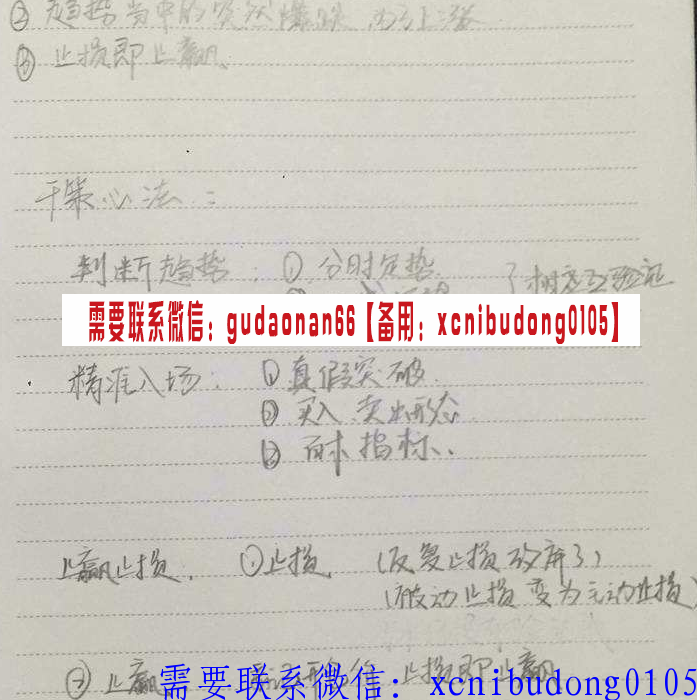 ② 趋势当中的突然爆跌 为了上涨
③ 止损即止赢
干策心法：
判断趋势：① 分时定势
需要联系微信：gudaonan66【备用：xcnibudong0105】
精准入场：① 真假突破
② 买入 卖出形态
③ 指标..
止赢止损. ①止损. (反复止损放弃了)
(被动止损变为主动止损)
② 止赢 止损即止赢
需要联系微信：xcnibudong0105